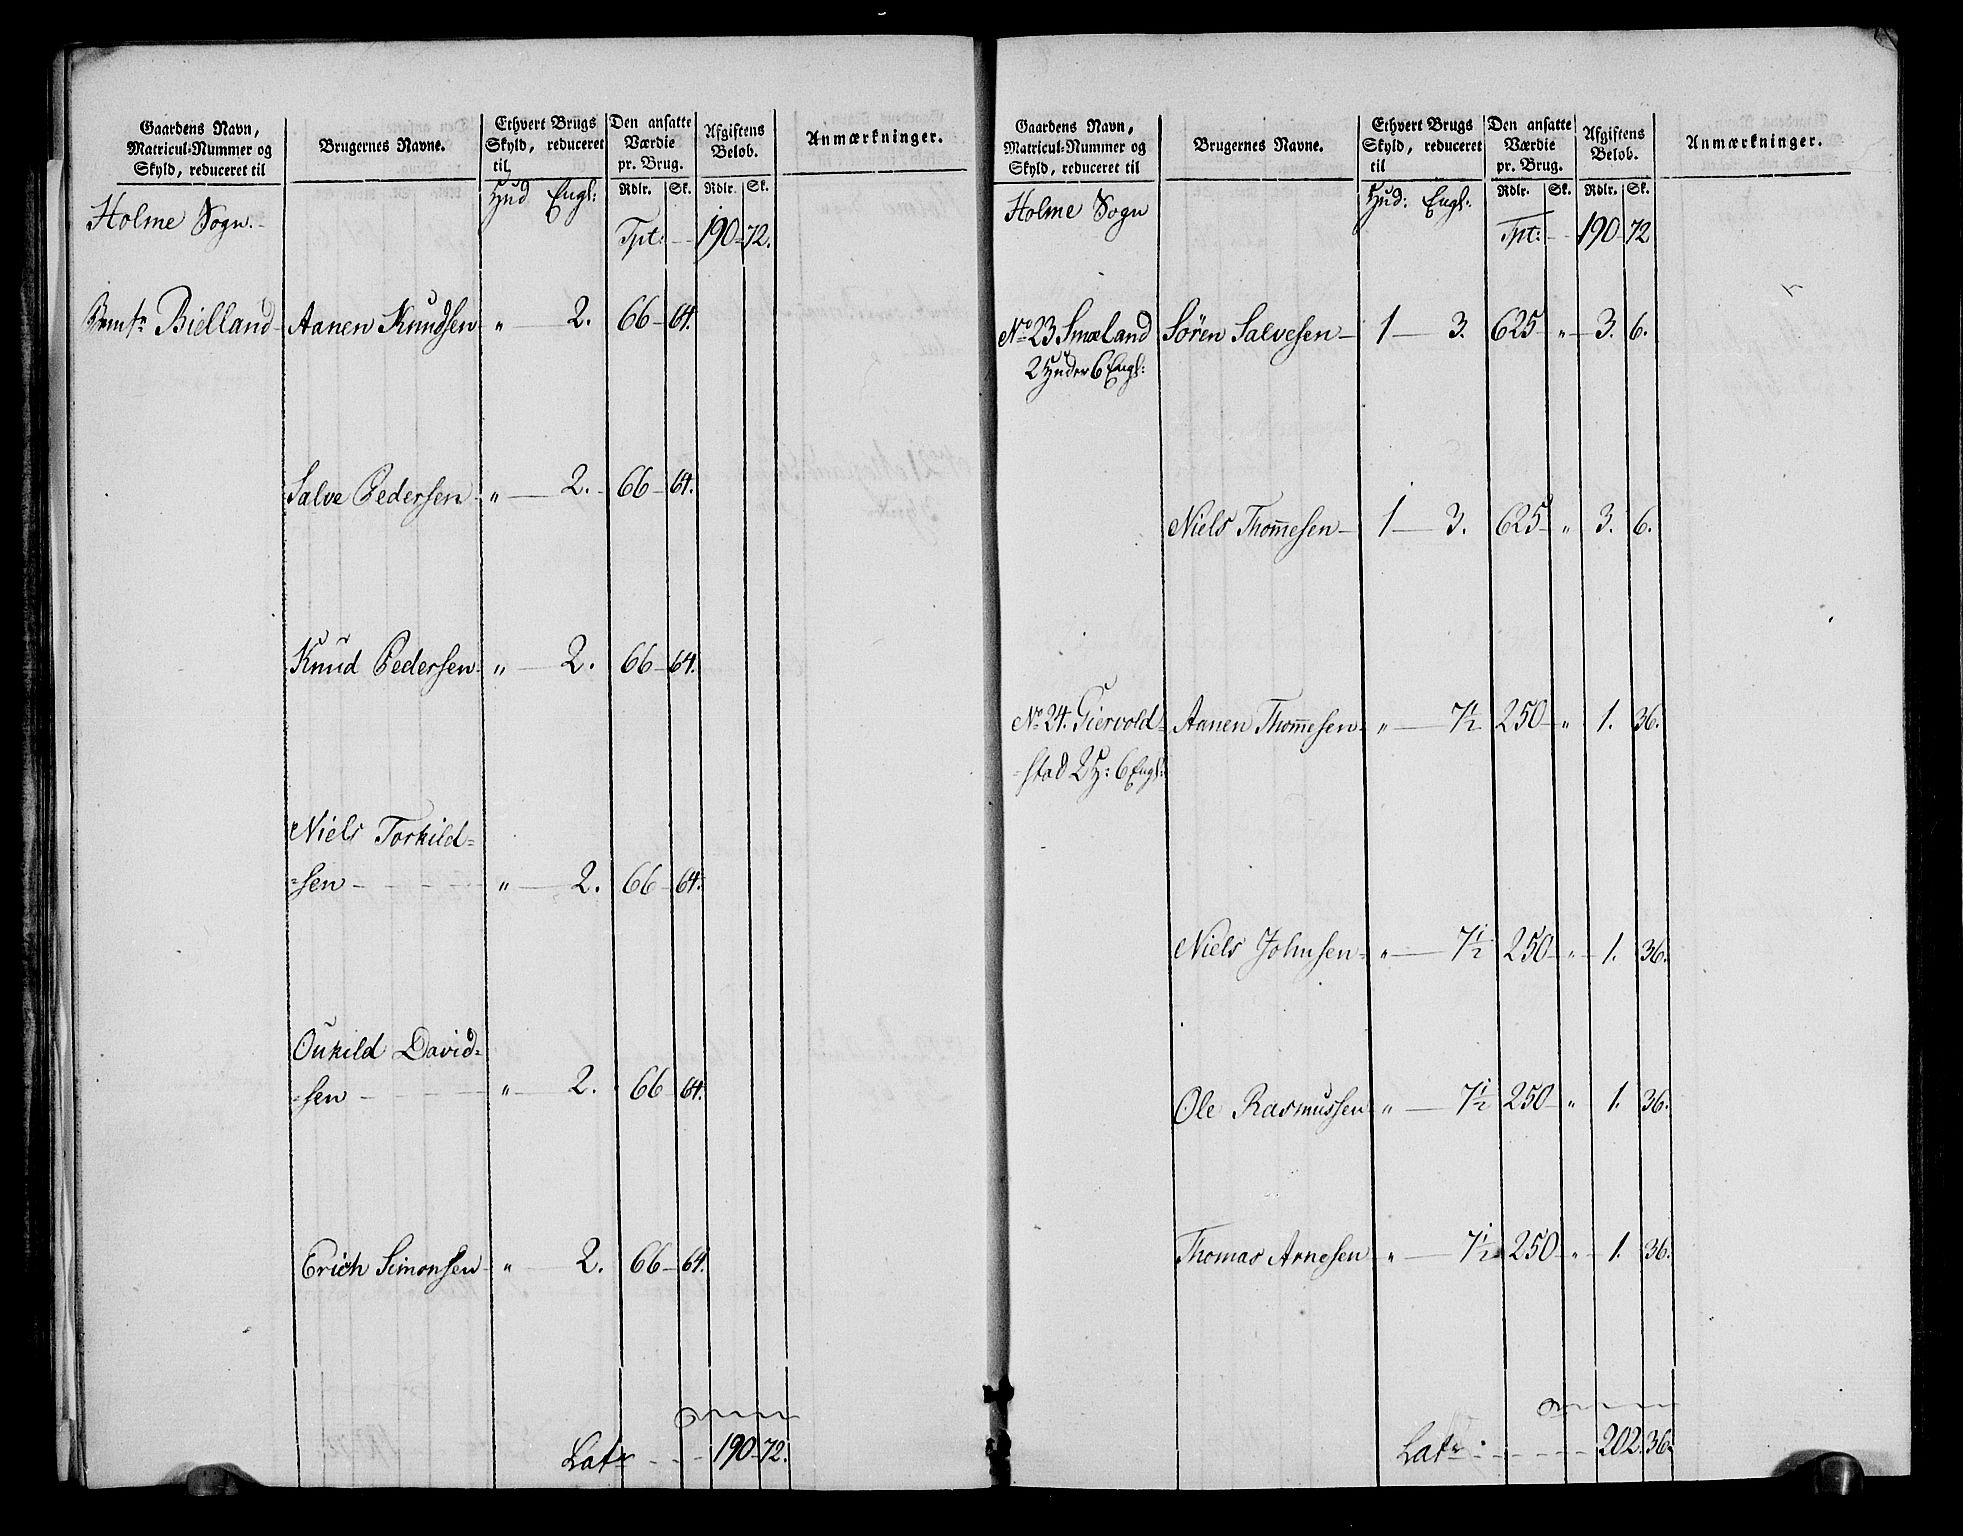 Gaardens Navn, Matricul-Nummer og Skyld, reduceret til | Brugernes Navne. | Ethvert Brugs Skyld, reduceret til | Den ansatte Værdie pr. Brug. | Afgiftens Beløb. | Anmærkninger.
Hud Engl: | Rdlr. | Sk. | Rdlr. | Sk.
Holme Sogn.
Tpt: 190 72.
Bielland Aanen Knudsen " 2. 66 64.
Salve Pedersen " 2. 66 64.
Knud Pedersen " 2. 66 64.
Niels Torkild=
=sen " 2. 66 64.
Oukild David=
=sen " 2. 66 64.
Erich Simonsen " 2. 66 64.
Latr 190 72.
Gaardens Navn, Matricul-Nummer og Skyld, reduceret til | Brugernes Navne. | Ethvert Brugs Skyld, reduceret til | Den ansatte Værdie pr. Brug. | Afgiftens Beløb. | Anmærkninger.
Hud: Engl: | Rdlr. | Sk. | Rdlr. | Sk.
Holme Sogn
Tpt: 190 72
No 23 Smæland Søren Salvesen 1 3. 625 " 3. 6.
2 Huder 6 Engl:
Niels Thomesen 1 3. 625 " 3. 6.
No 24. Giervold= Aanen Thomesen " 7½ 250 " 1. 36.
=stad 2 H: 6 Engl:
Niels Johnsen " 7½ 250 " 1. 36.
Ole Rasmussen " 7½ 250 " 1. 36.
Thomas Arnesen " 7½ 250 " 1. 36.
Latr 202. 36.